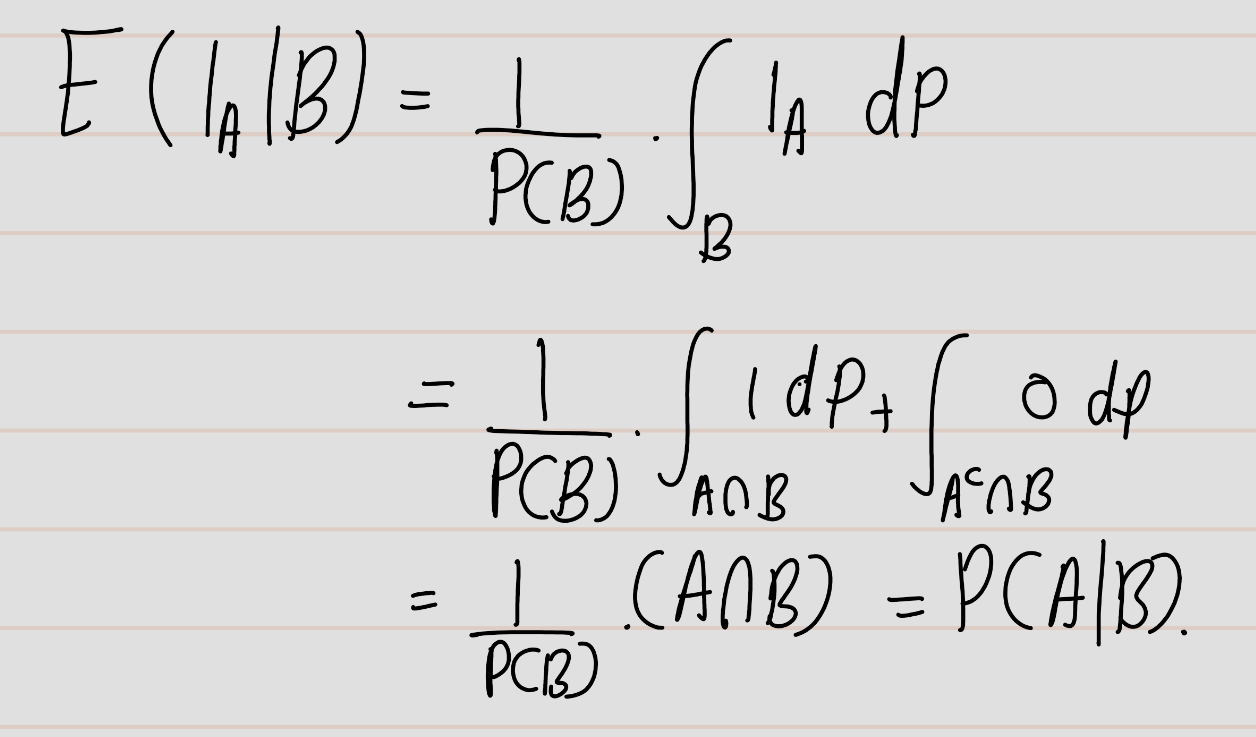 E(1_A|B) = 1/P(B) · ∫_B 1_A dP
= 1/P(B) · ∫_{A∩B} 1 dP + ∫_{A^c∩B} 0 dP
= 1/P(B) · (A∩B) = P(A|B).